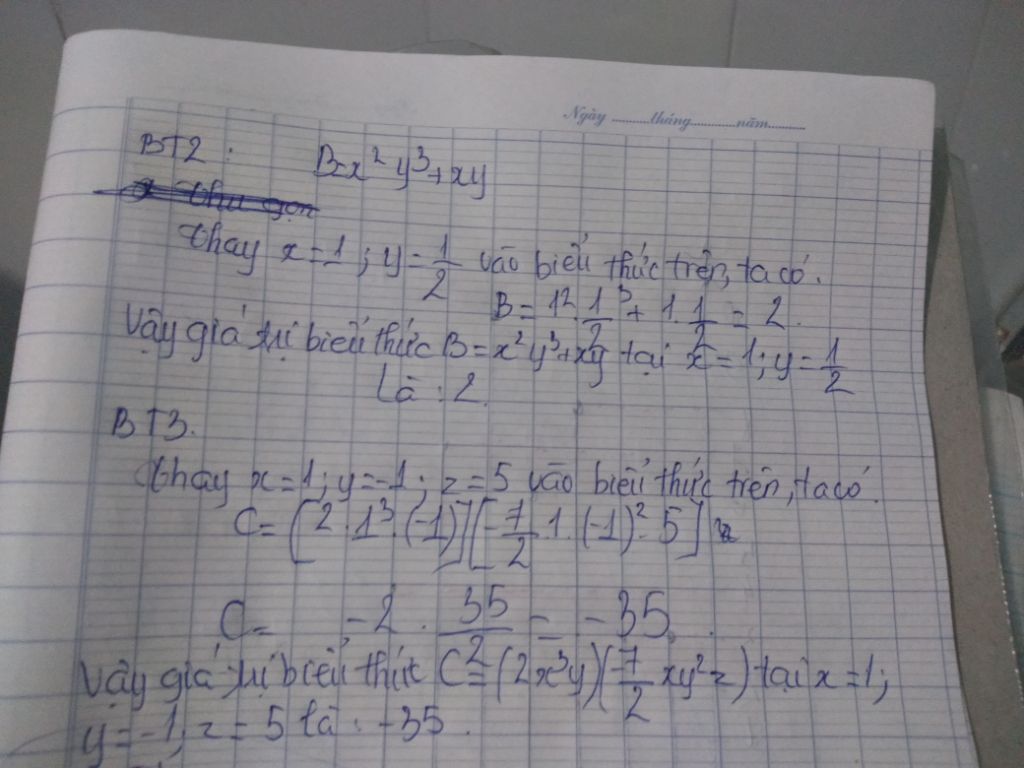 Ngày ..........tháng..........năm..........
BT2 : B=x² y³+xy
Thay x=1 ; y=1/2 vào biểu thức trên, ta có.
B = 1². 1/2³ + 1. 1/2 = 2.
Vậy giá trị biểu thức B = x²y³+xy tại x=1; y=1/2
là : 2.
BT3.
Thay x=1; y=-1; z=5 vào biểu thức trên, ta có.
C= [2.1³.(-1)][-7/2.1.(-1)².5]
C= -2 . 35/2 = -35.
Vậy giá trị biểu thức C=(2x³y)(-7/2 xy²z) tại x=1;
y=-1; z=5 là : -35.